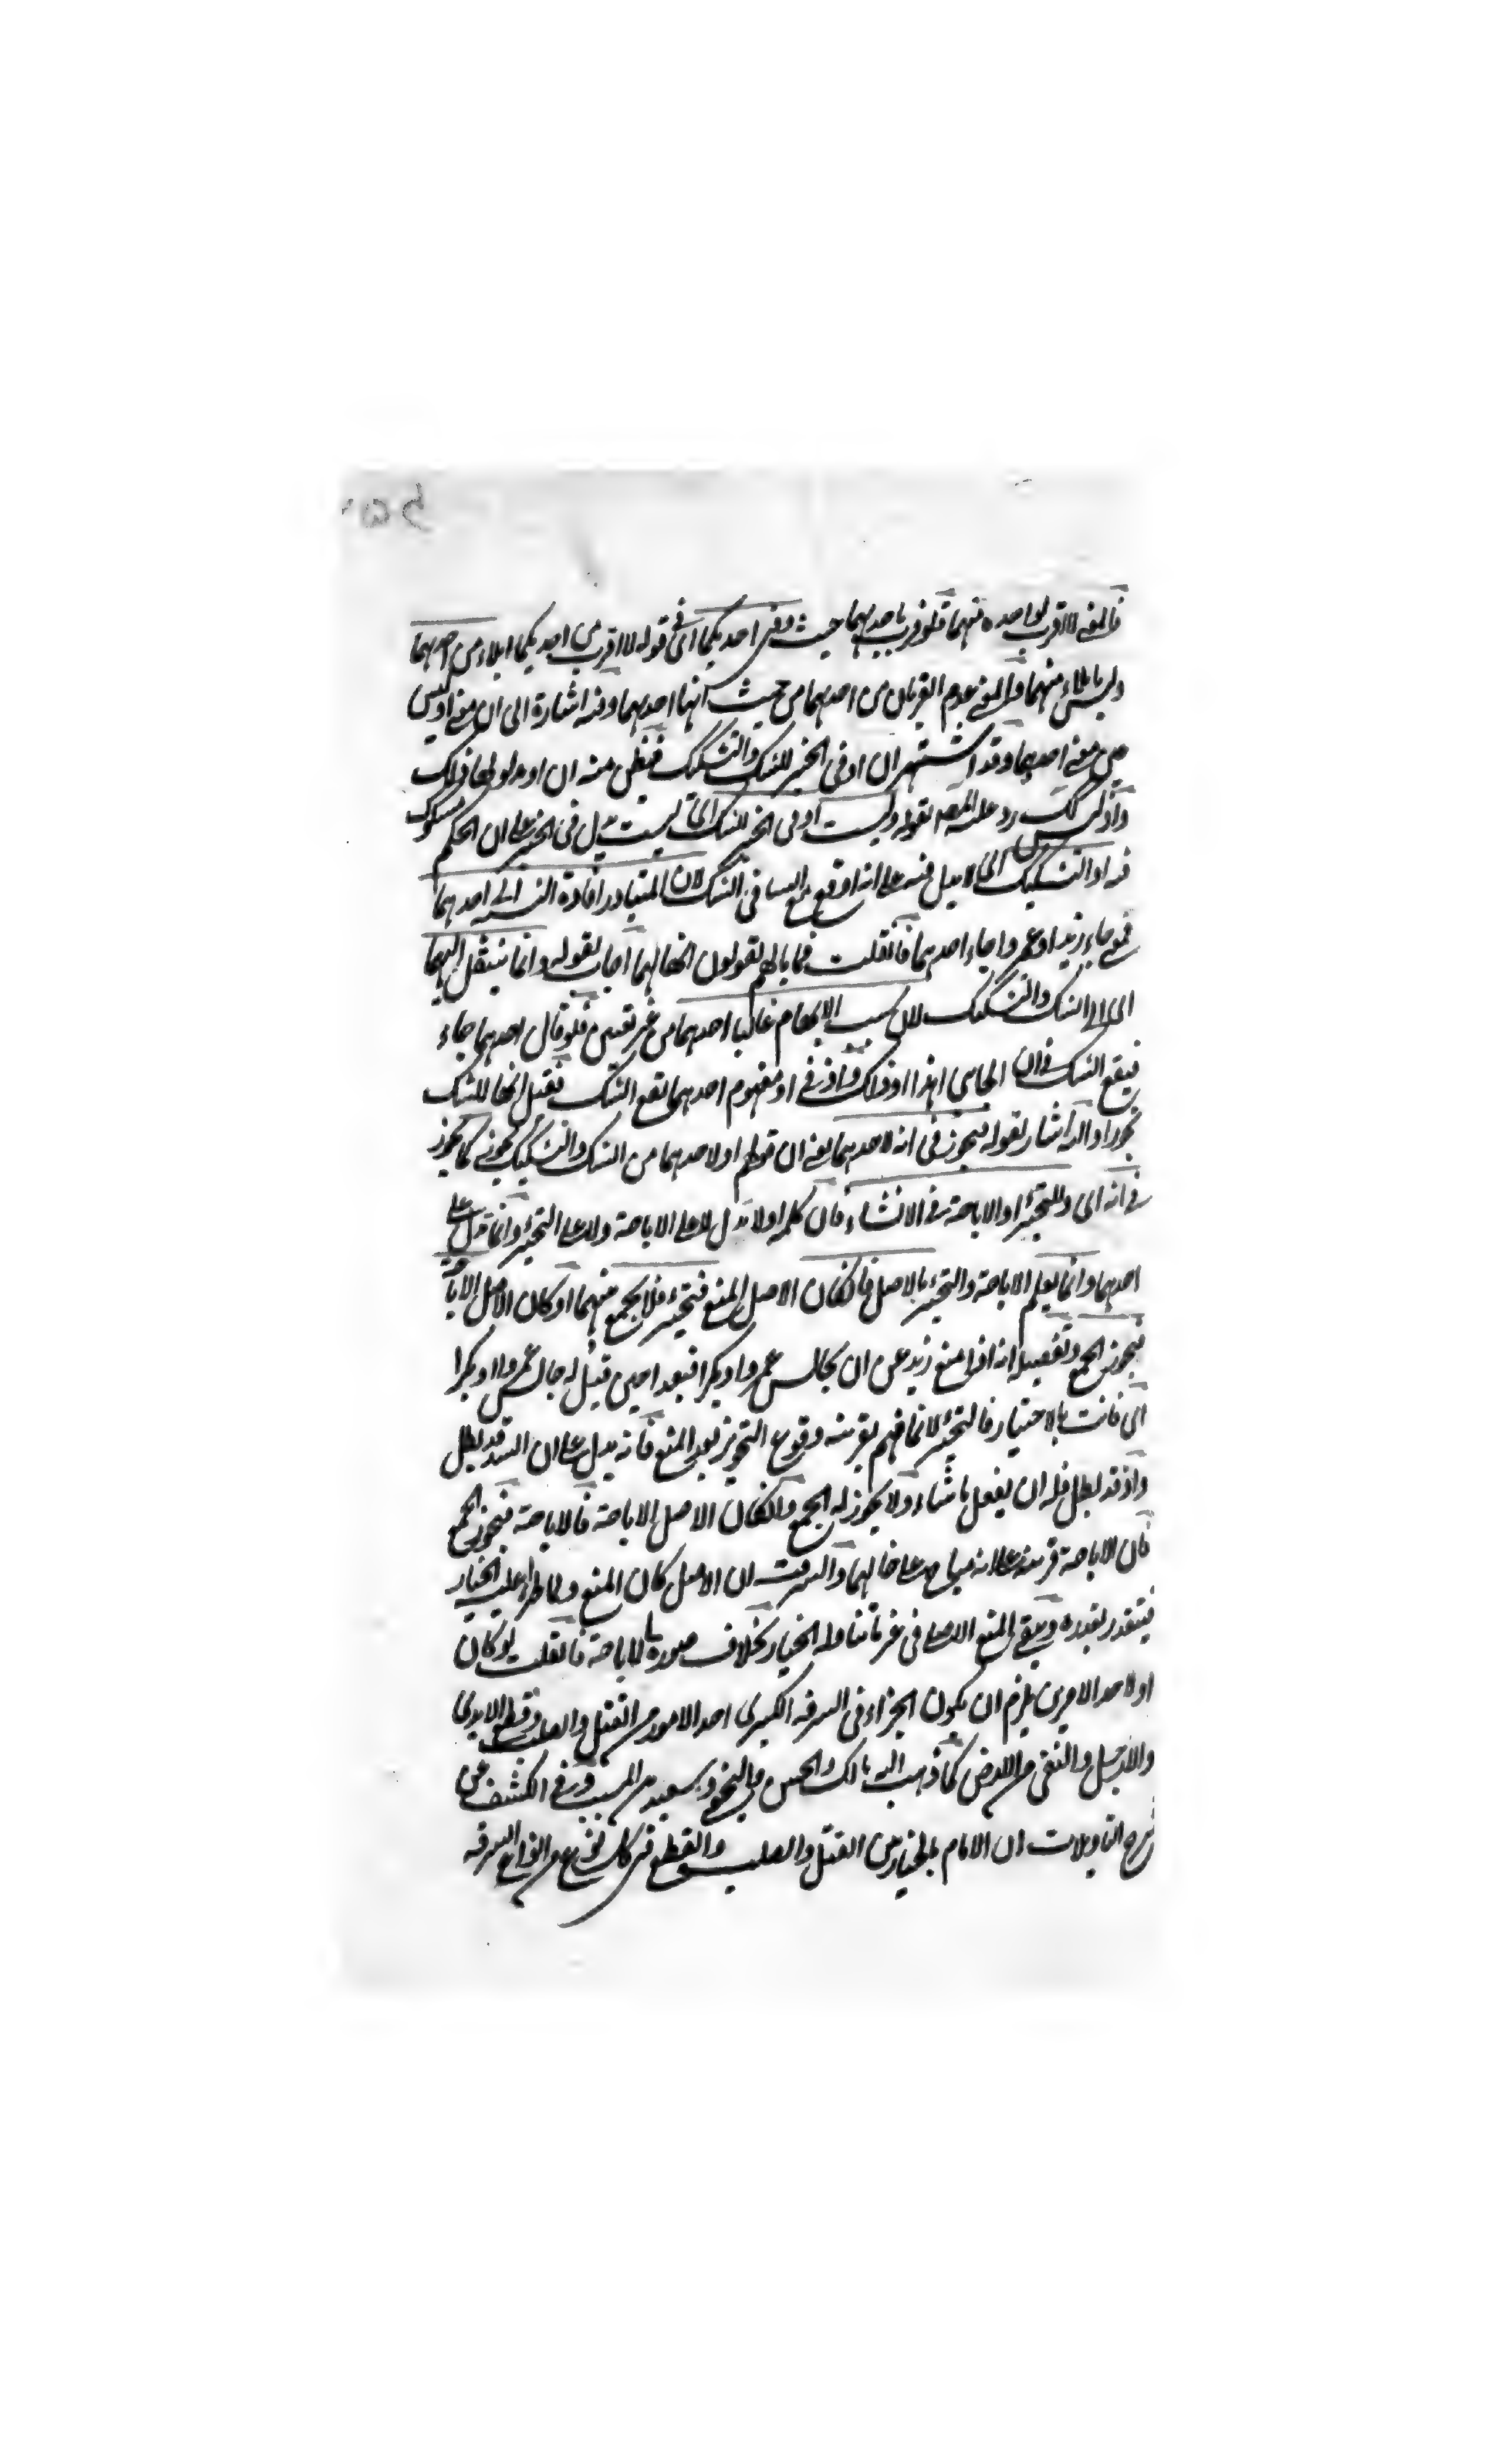 فالمعنى لا اقرب لواحدة منهما فلو قرب باحديهما حيث وفى احديكما اى فى قوله لا اقرب من احديكما ايلاء من احديهما
وليس بايلاء منهما والمعنى عدم القربان من احديهما من حيث انها احديهما وفيه اشارة الى ان معنى او ليس
من معنى احديهما وقد اشتهر ان او فى الخبر للشك والتشكيك فيظن منه ان او مدلولها ذلك
واذ ليس كذلك رد عليه المصه بقوله وليست او فى الخبر للشك اى ليست تدل فى الخبر على ان الحكم مشكوك
فيه او التشكيك اى لا يدل فيه على انه اوقع السامع فى الشك لان المتبادر افادة النسبة الى احدهما
نحو جاء زيد او عمرو اجاء احدهما فانقلت فما بالهم يقولون انها لهما اجاب بقوله وانما ينتقل اليهما
اى الى الشك والتشكيك لان سبب الابهام غالبا احدهما من غير تعيين فلو قال احدهما جاء
فيقع الشك فى ان الجائى اهذا او ذاك واذ فى او مفهوم احدهما يقع الشك فقيل انها للشك
تجوزا واليه اشار بقوله فيجوز فى انه لاحدهما يعنى ان قولهم او لاحدهما من الشك والتشكيك تجوز كما يجوز
فى انه اى وللتخيير او الاباحة فى الانشاء فان كلمة او لا تدل لا على الاباحة ولا على التخيير وانما تدل على
احدهما وانما يعلم الاباحة والتخيير بالاصل فان كان الاصل المنع فتخيير فلا يجمع منهما او كان الاصل الاباحة
فيجوز الجمع وتفصيله انه اذا منع زيد عن ان يجالس عمروا وبكرا فبعد احين قيل له جالس عمروا او بكرا
اى فانت بالاختيار فالتخيير لانما فهم بقرينة وقوع التجويز بعد المنع فانه يدل على ان السد قد بطل
واذ قد بطل فله ان يفعل ما شاء ولا يجوز له الجمع وان كان الاصل الاباحة فالاباحة فيجوز الجمع
فان الاباحة قرينة على انه مباح على حالهما والسر فيه ان الاصل كان المنع ولما طرأ عليه الخيار
فيتقدر بقدره ويبقى المنع الاصلى فى غير ما تناوله الخيار بخلاف صورة الاباحة فانقلت لو كان
او لاحد الامرين يلزم ان يكون الجزاء فى السرقة الكبرى احد الامور من القتل والصلب وقطع الايدى
والارجل والنفى من الارض كما ذهب اليه مالك والحسن والنخعى وسعيد بن المسيب وفى الكشف عن
شرح التاويلات ان الامام بالخيار بين القتل والصلب والقطع فى كل نوع من انواع السرقة